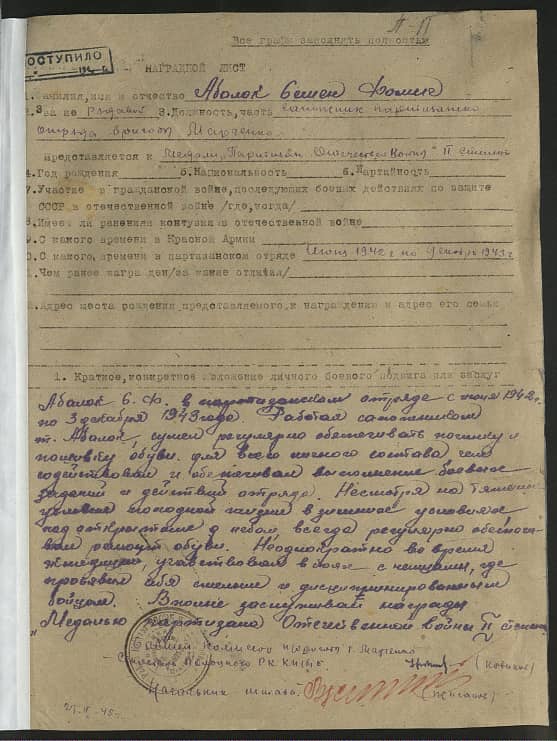 Все графы заполнять полностью
ПОСТУПИЛО
НАГРАДНОЙ ЛИСТ
1. Фамилия, имя и отчество Абалок Семен Фомич
2. Зва ие рядовой 3. Должность, часть сапожник партизанско
отряда бригады Марченко
Представляется к Медали "Партизан Отечествен Войны" II степени
4. Год рождения 5. Национальность 6. Партийность
7. Участие в гражданской войне, последующих боевых действиях по защите
СССР в отечественной войне /где, когда/
8. Имеет ли ранения и контузии в отечественной войне
9. С какого времени в Красной Армии
10. С какого времени в партизанском отряде Июнь 1942 г. по декабрь 1943 г.
11. Чем ранее награ ден/за какие отличая/
12. Адрес места рождения представляемого к награждению и адрес его семьи
1. Краткое, конкретное изложение личного боевого подвига или заслуг
Абалок С. Ф. в партизанском отряде с июня 1942 г.
по 3 декабря 1943 года. Работая сапожником
т. Абалок, сумел регулярно обеспечивать починку и
пошивку обуви для всего личного состава, чем
содействовал и обеспечивал выполнение боевое
заданий и действий отряда. Несмотря на тяжелые
условия походной жизни в зимних условиях
под открытым небом всегда регулярно обеспечи-
вал ремонт обуви. Неоднократно во время
экспедиций, участвовал в боях с немцами, где
проявил себя смелым и дисциплинированным
бойцом. Вполне заслуживает награды
"Медалью Партизана Отечественной войны II степени
Комиссар бригады т. Марченко
Секретарь РК КП(б)Б (Новиков)
Начальник штаба